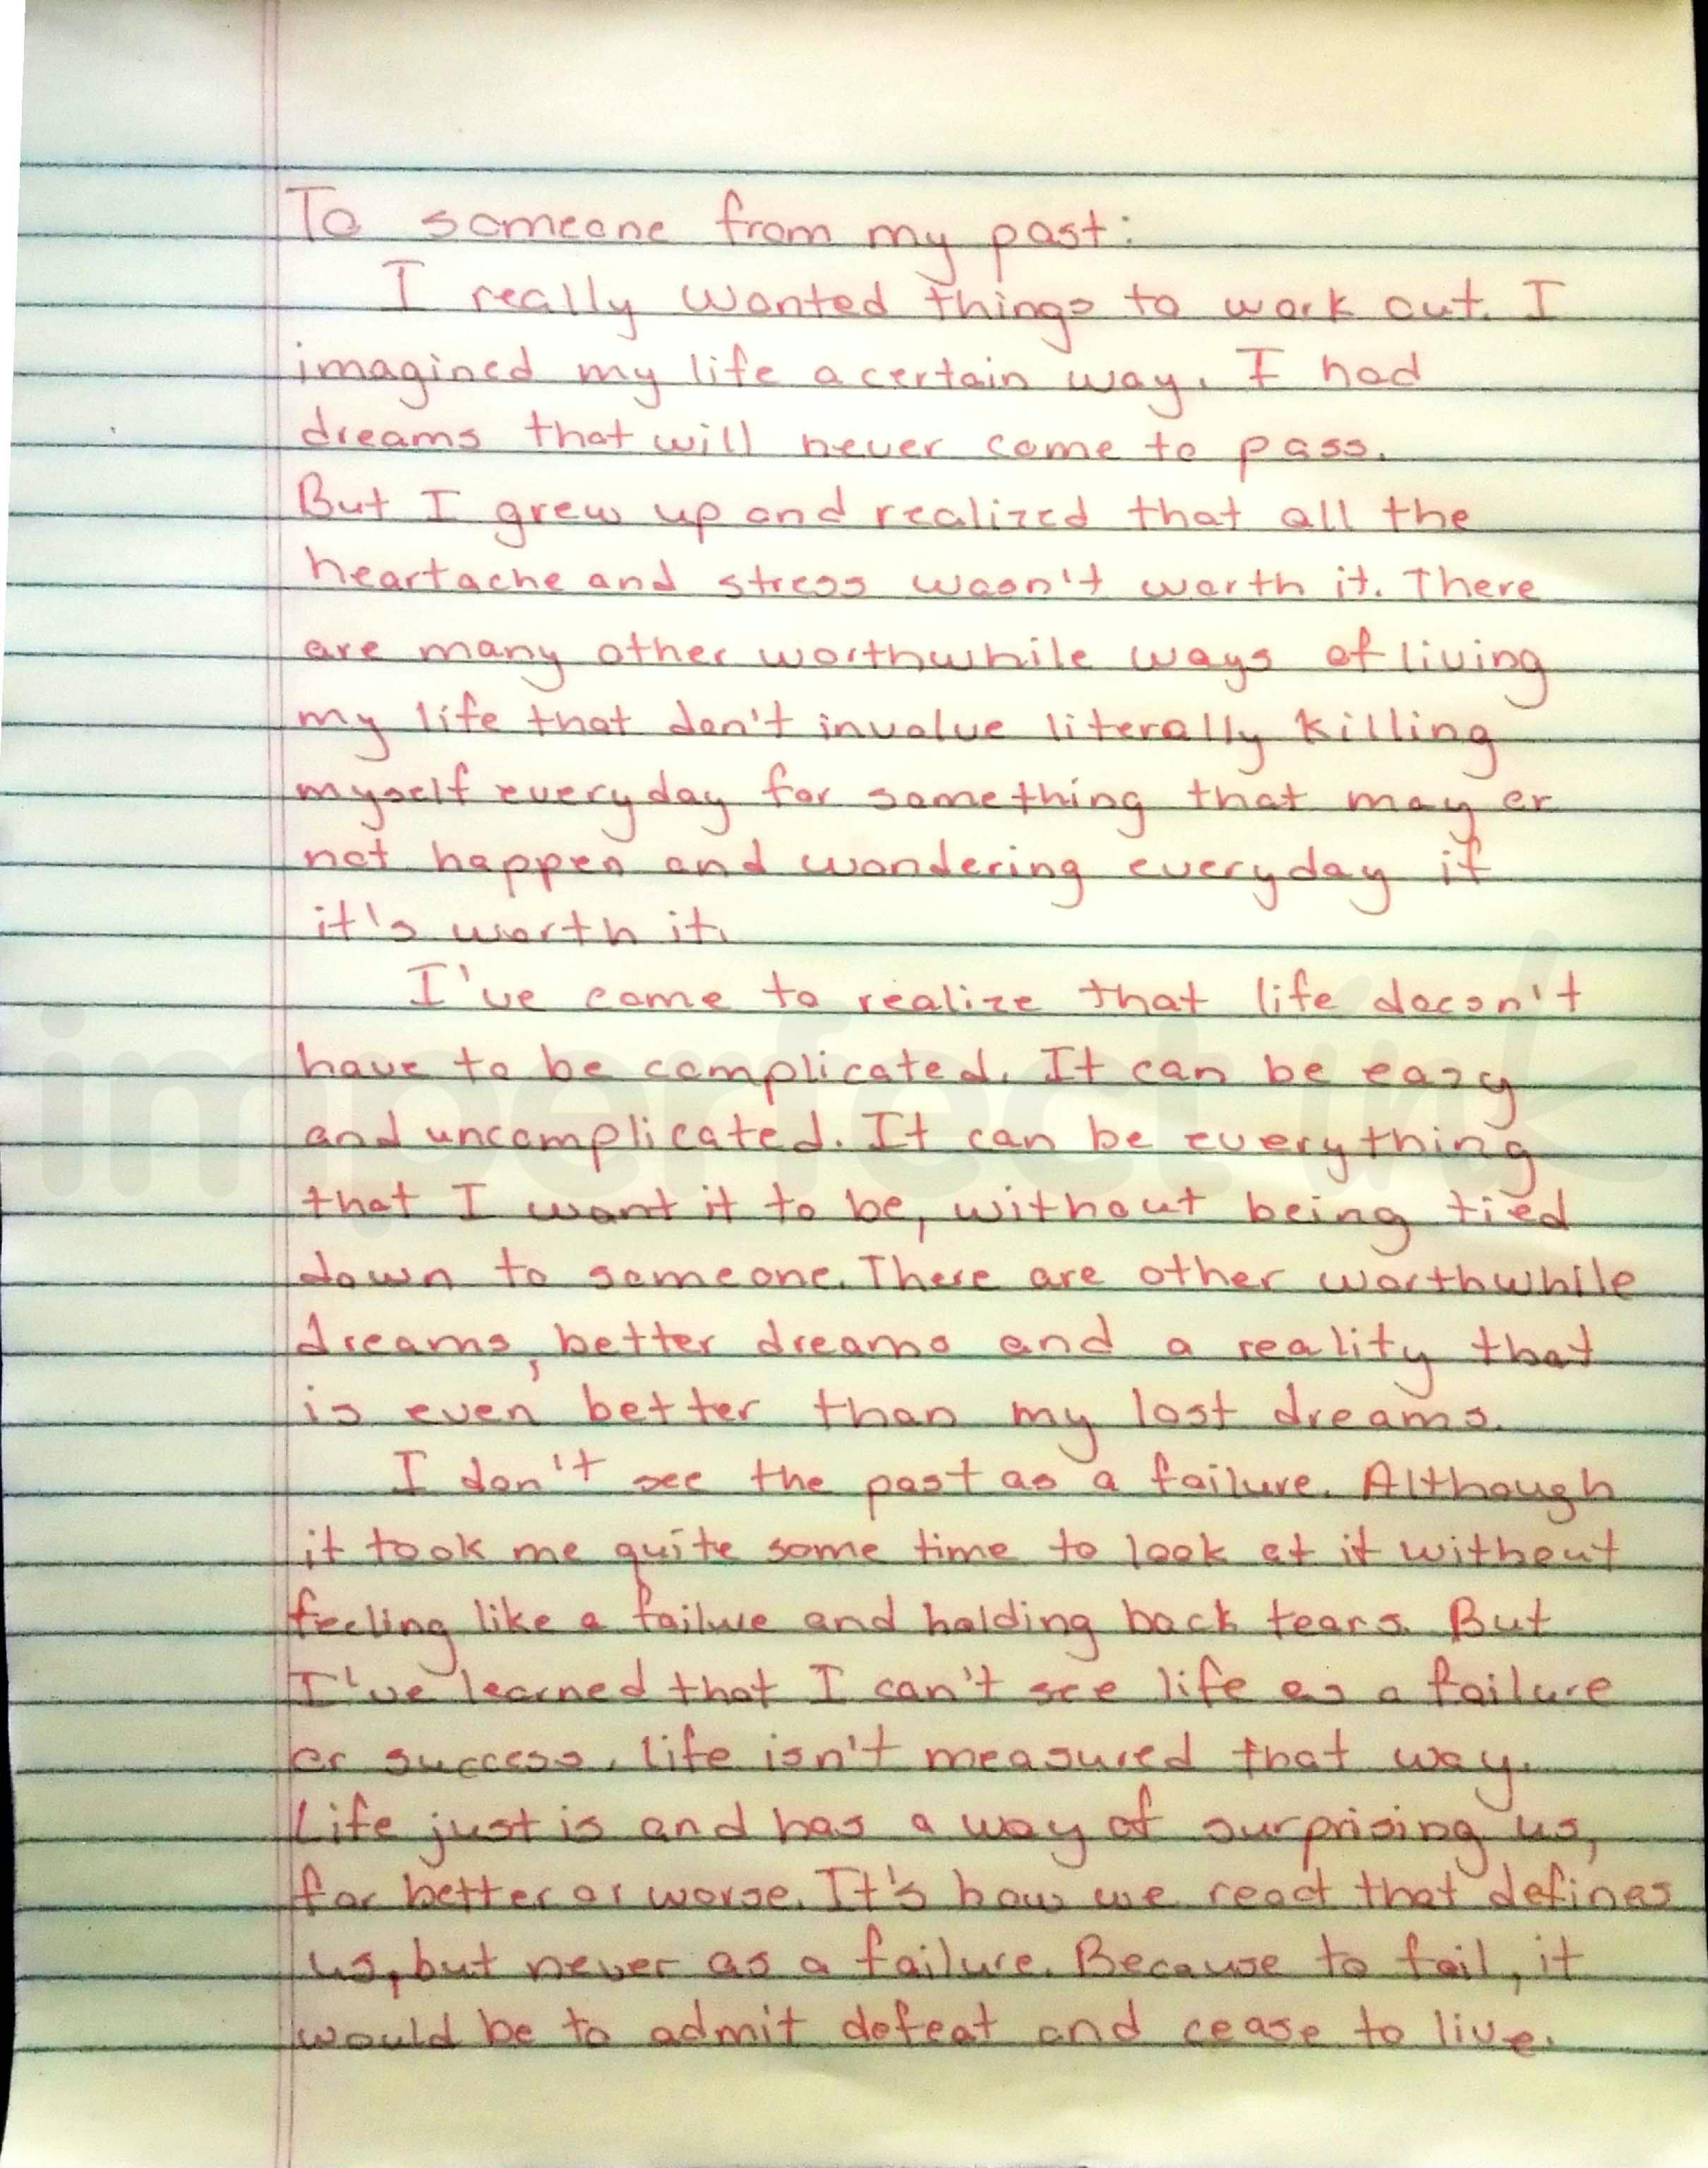 To someone from my past:
I really wanted things to work out. I
imagined my life a certain way. I had
dreams that will never come to pass.
But I grew up and realized that all the
heartache and stress wasn't worth it. There
are many other worthwhile ways of living
my life that don't involve literally killing
myself everyday for something that may or
not happen and wondering everyday if
it's worth it.
I've come to realize that life doesn't
have to be complicated. It can be easy
and uncomplicated. It can be everything
that I want it to be, without being tied
down to someone. There are other worthwhile
dreams, better dreams and a reality that
is even better than my lost dreams.
I don't see the past as a failure. Although
it took me quite some time to look at it without
feeling like a failure and holding back tears. But
I've learned that I can't see life as a failure
or success. life isn't measured that way.
Life just is and has a way of surprising us,
for better or worse. It's how we react that defines
us, but never as a failure. Because to fail, it
would be to admit defeat and cease to live.
imperfect ink